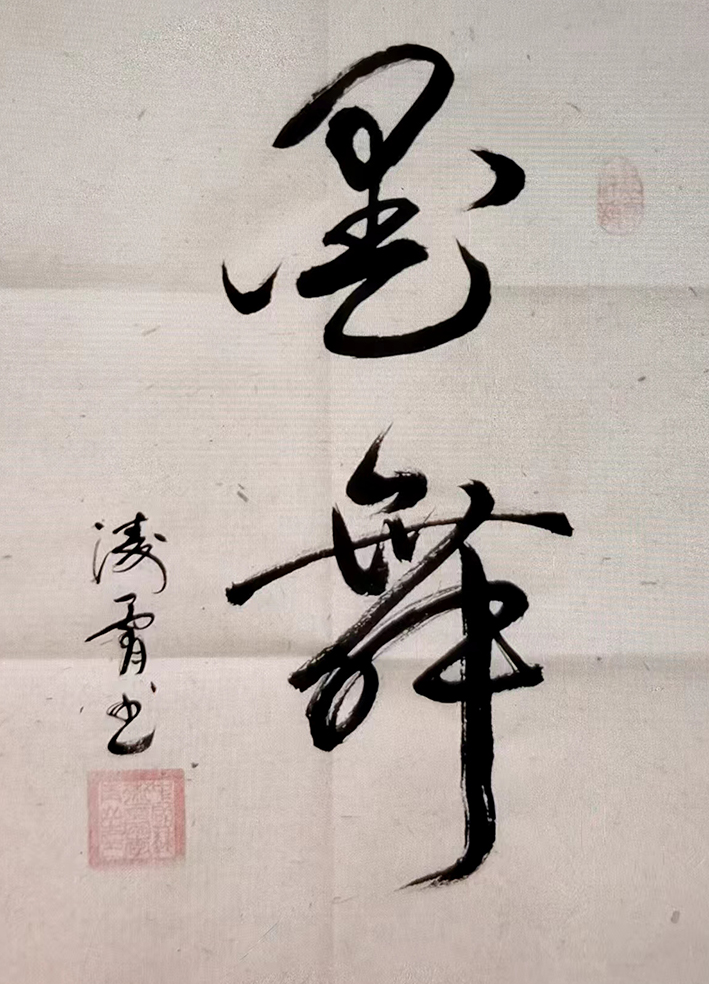 墨舞
凌霄书